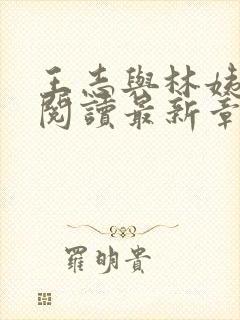 王志與林姨
閱讀最新章
羅明貴